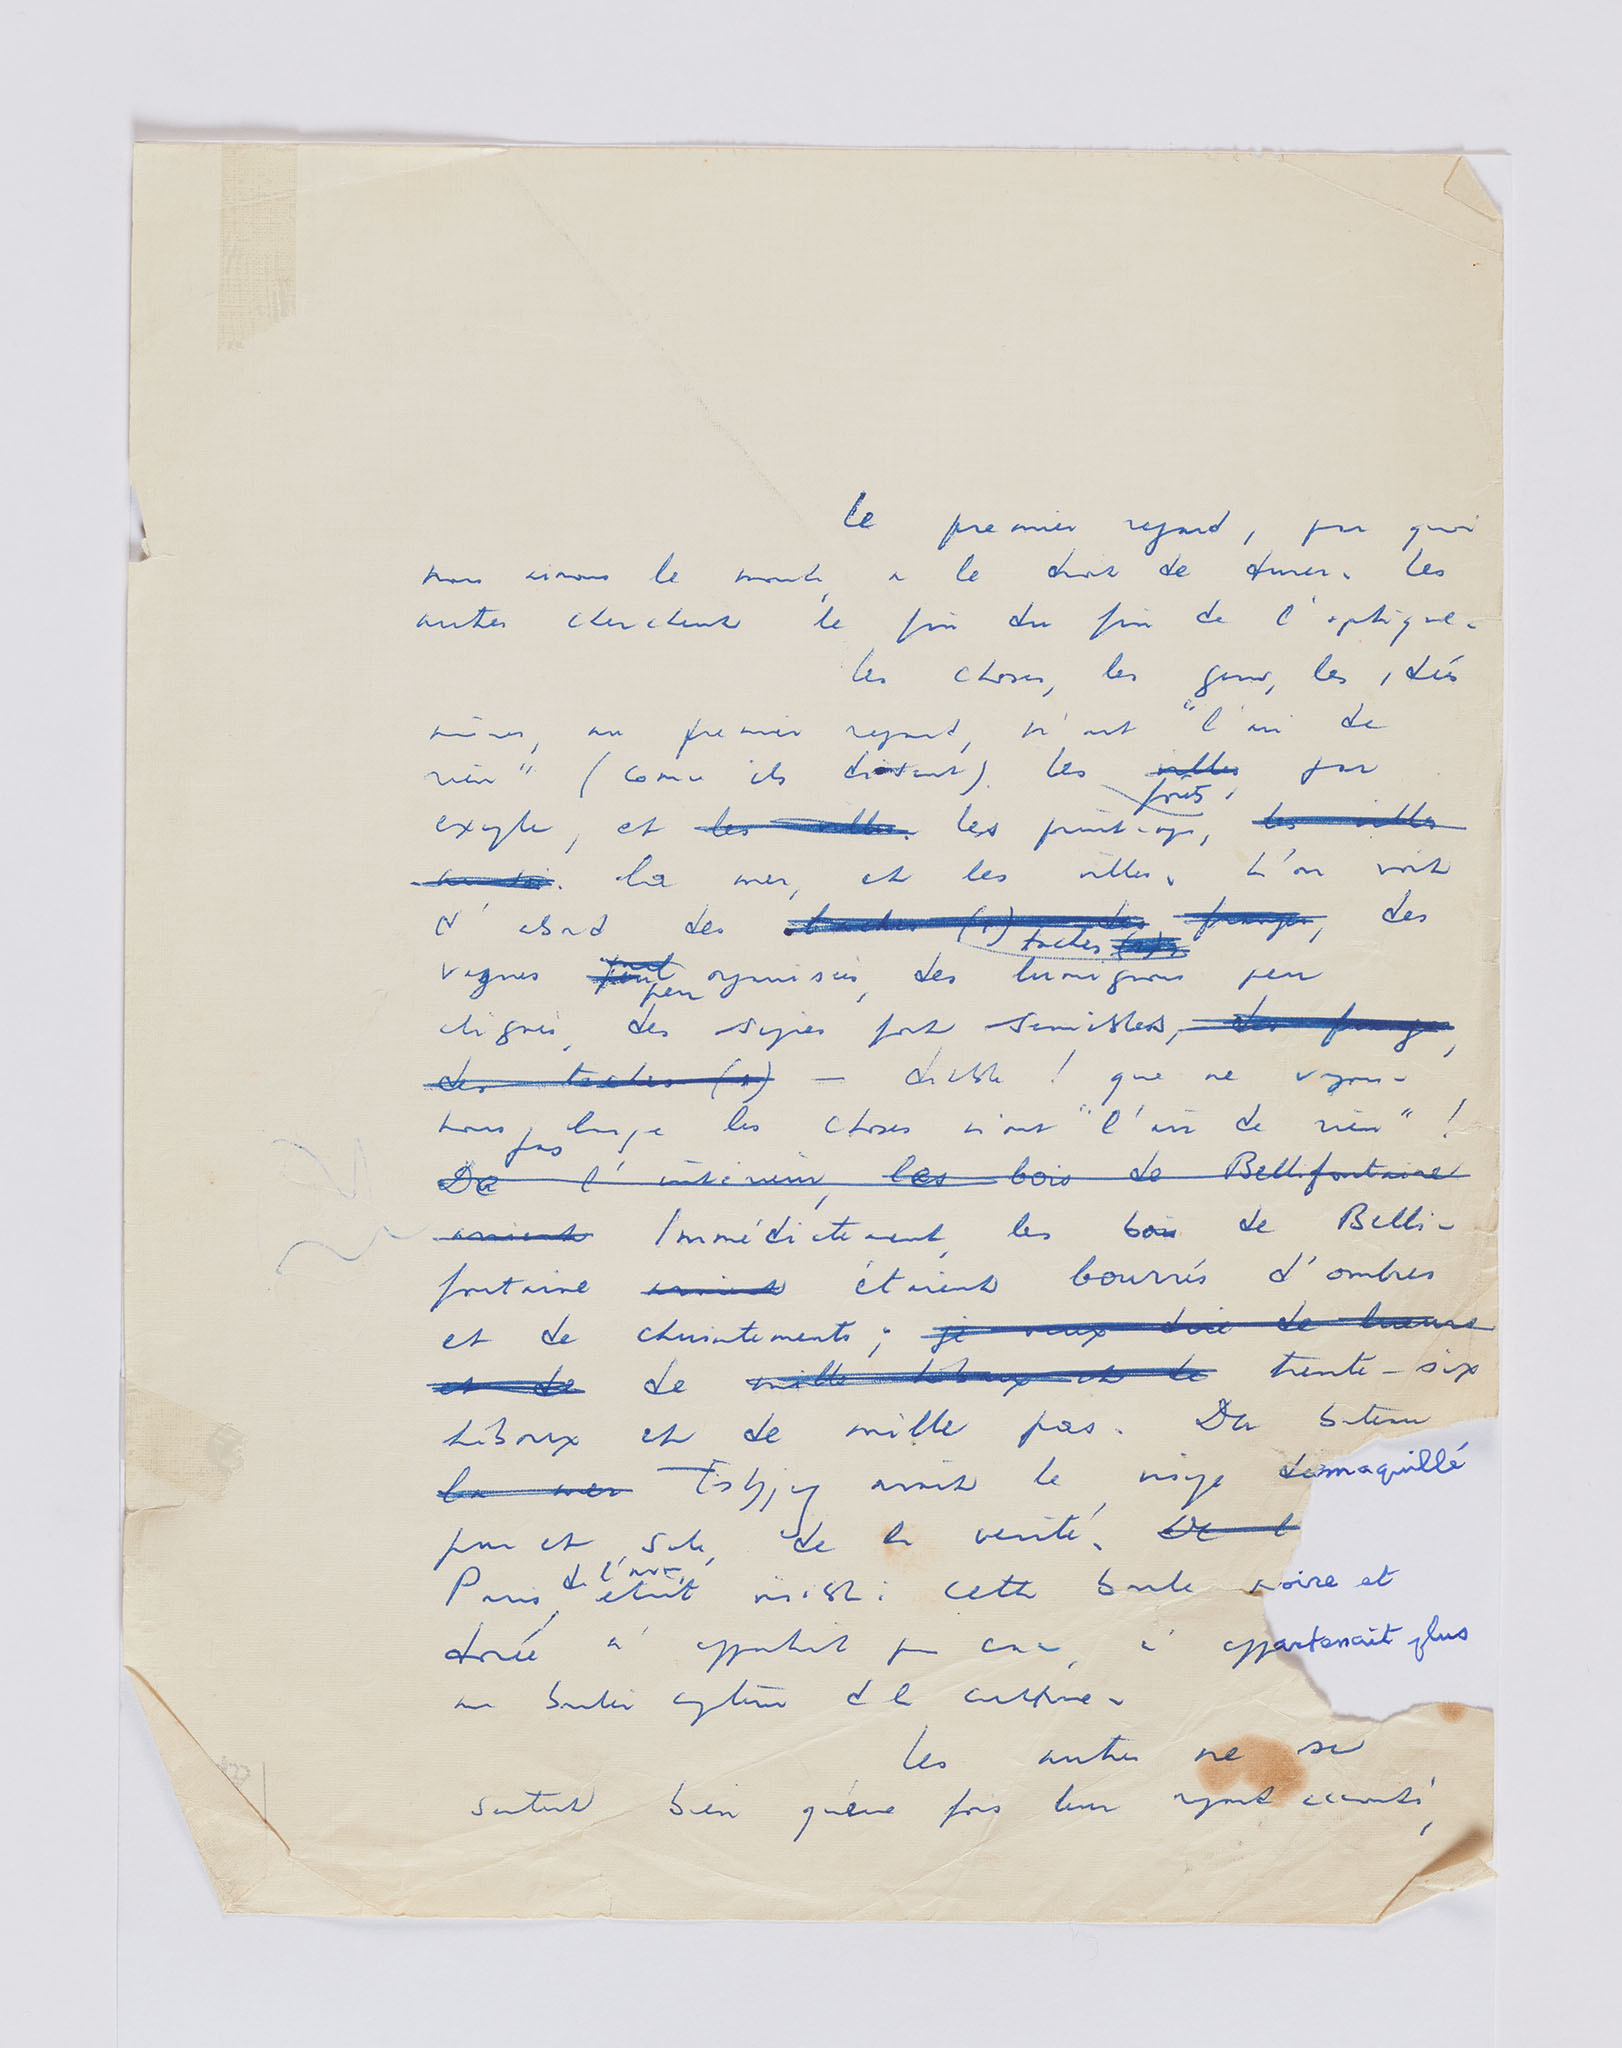 Le premier regard, par quoi
nous aimons le monde, a le droit de durer. Les
autres cherchent le fin du fin de l'optique.
Les choses, les gens, les idées
mêmes, au premier regard, n'ont "l'air de
rien" (comme ils disent). Les villes par
forêts,
exemple, et les villes. les printemps, les villes
aussi. La mer, et les villes. L'on voit
d'abord des taches (s) des franges, des
taches
vagues peu organisées, des lumignons peu
peu
alignés, des signes fort semblables, des franges,
des taches (s) — diable ! que ne voyons-
nous pas lorsque les choses n'ont "l'air de rien" !
De l'intérieur, les bois de Bellifontaine
avaient Immédiatement, les bois de Belli-
fontaine avaient étaient bourrés d'ombres
et de chuintements ; je veux dire de lueurs
et de de mille hiboux et de trente-six
hiboux et de mille pas. Du bateau
la mer avait le visage démaquillé
pur et sale, de la vérité. De l
de l'avion,
Paris, était visible : cette boule noire et
dorée n'appartenait pas , n'appartenait plus
au système de la
Les autres ne se
sentent bien qu'une fois leur regard accounté,